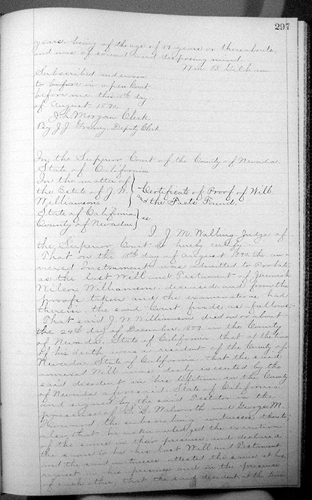 297
years, being of the age of 18 years or thereabouts,
and was of sound and disposing mind.
Subscribed and sworn
to before me in open Court
before me this day
of August 1890.
J. H. Morgan Clerk
By J. J. Deputy Clerk
In the Superior Court of the County of Nevada,
State of California
In the matter of
the Estate of J. W. Certificate of Proof of Will
Williamson & the Facts Found.
State of California
County of Nevada ss.
I J. M. Walling Judge of
the Superior Court do hereby certify:
That on the day of August 1890 the an-
nexed instrument was admitted to probate
as the last Will and Testament of Jeremiah
Wilson Williamson, deceased and from the
proofs taken and the examination had
therein the said Court finds as follows:
That said J. W. Williamson died on or about
the 20th day of December, in the County
of Nevada, State of California, that at the time
of his death he was a resident of the County of
Nevada, State of California, that the said
annexed Will was duly executed by the
said decedent in his lifetime in the County
of Nevada aforesaid, State of California,
and signed by the said Testator in the
presence of Walworth and George M.
the subscribing witnesses thereto;
also that he acknowledged the execution
of the same in their presence and declared
the same to be his last Will and Testament
and the said witnesses attested the same at his
request in his presence and in the presence
of each other, that the said decedent at the time